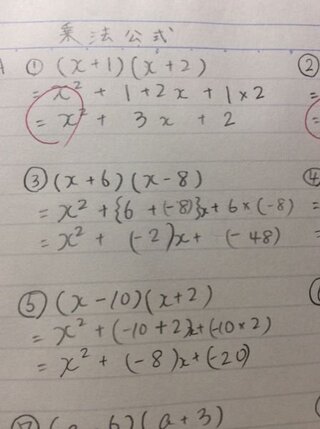 乗法公式
① (x+1)(x+2)
②
= x² + 1+2x + 1×2
= x² + 3x + 2
③ (x+6)(x-8)
④
= x² + {6 + (-8)}x + 6×(-8)
= x² + (-2)x + (-48)
⑤ (x-10)(x+2)
= x² + (-10+2)x + (-10×2)
= x² + (-8)x + (-20)